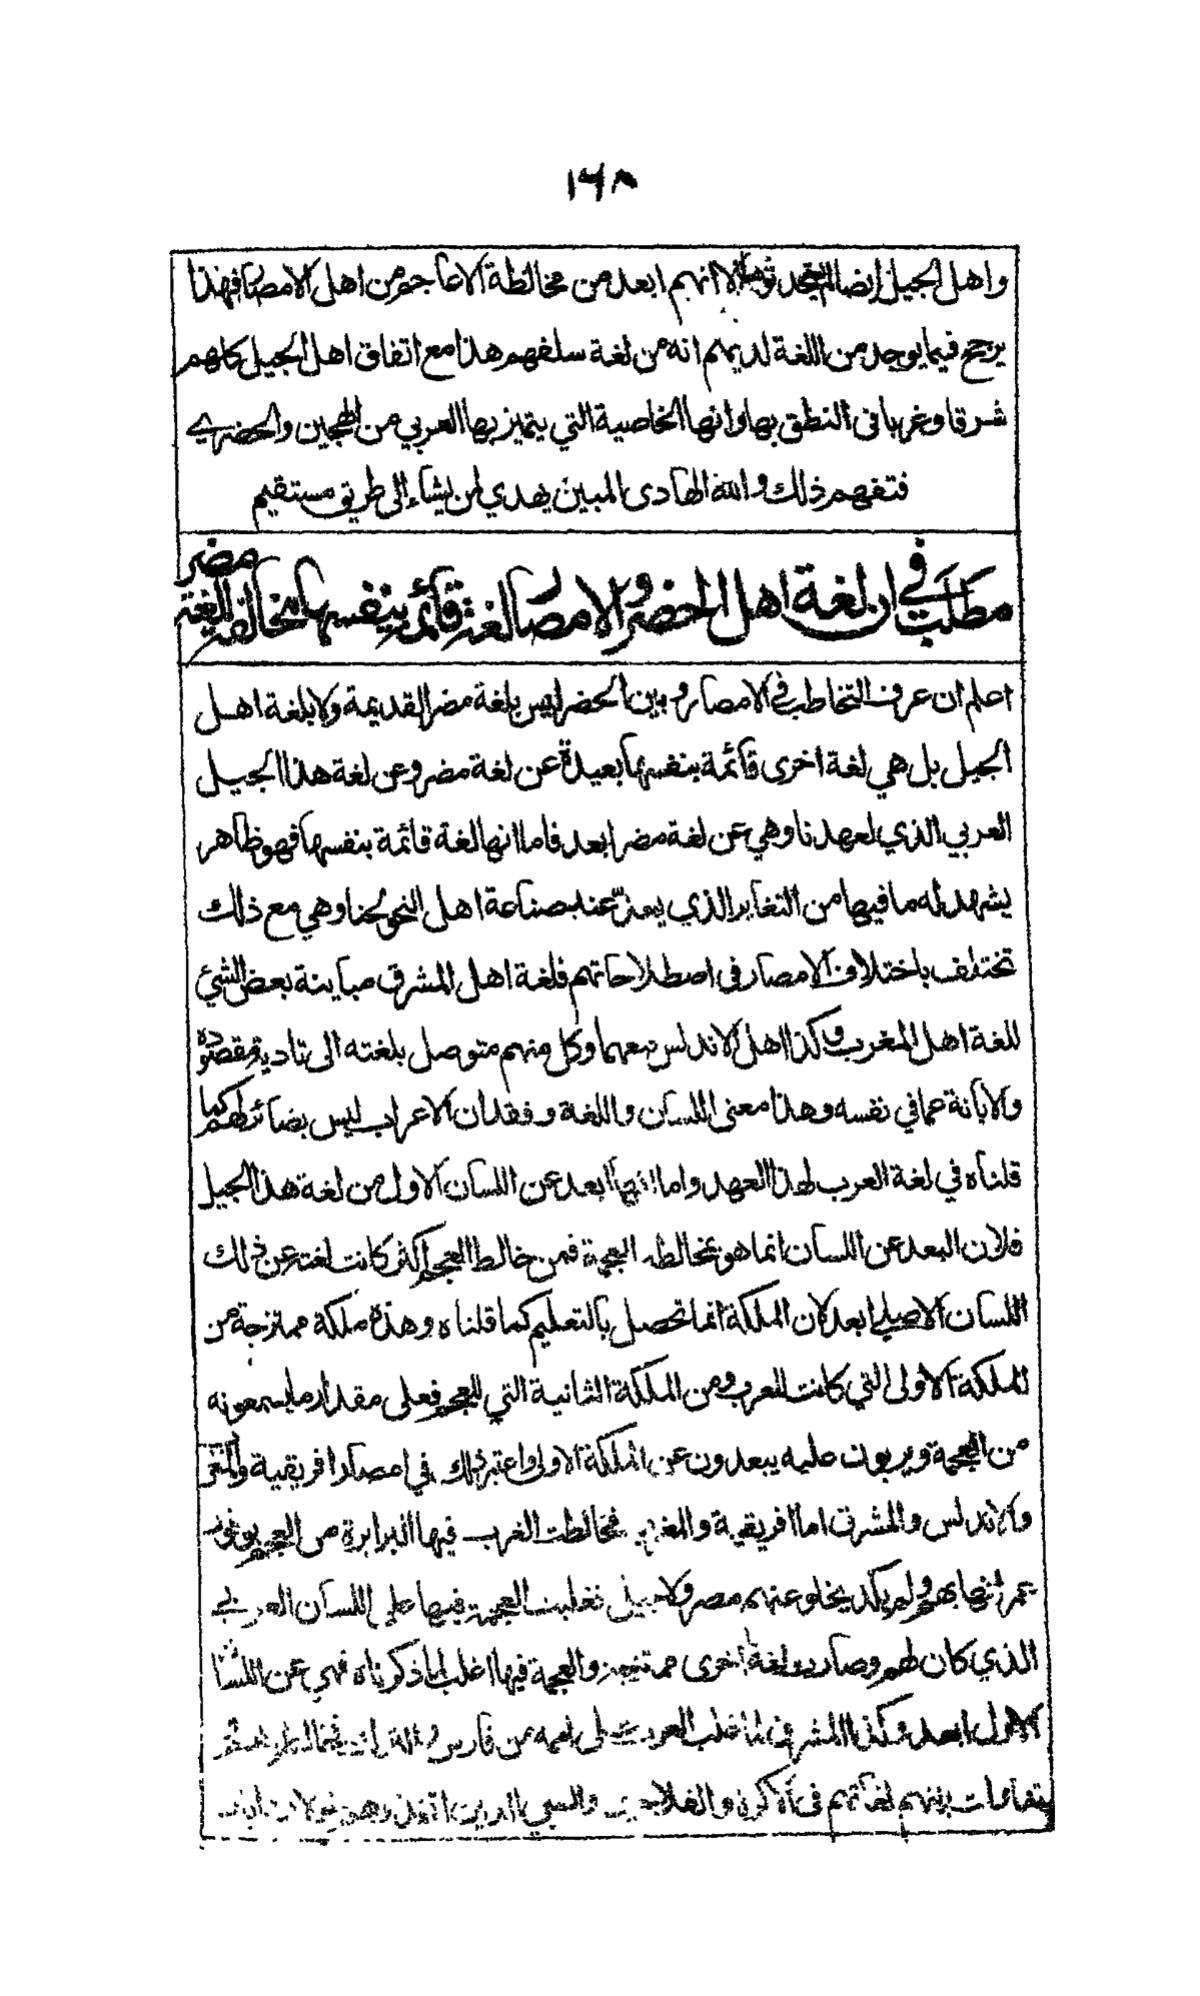 ١٦٨
واهل الجيل ايضا لم يحدثوها لانهم ابعد من مخالطة الاعاجم من اهل الامصار فهذا
يرجح فيما يوجد من اللغة لديهم انه من لغة سلفهم هذا مع اتفاق اهل الجيل كلهم
شرقا وغربا في النطق بها وانها الخاصية التي يتميز بها العربي من الهجين والحضري
فتفهم ذلك والله الهادى المبين يهدي لمن يشاء الى طريق مستقيم
مطلب في ان لغة اهل الحضر والامصار لغة قائمة بنفسها مخالفة للغة مضر
اعلم ان عرف التخاطب في الامصار وبين الحضر ليس بلغة مضر القديمة ولا بلغة اهل
الجيل بل هي لغة اخرى قائمة بنفسها بعيدة عن لغة مضر وعن لغة هذا الجيل
العربي الذي لعهدنا وهي عن لغة مضر ابعد فاما انها لغة قائمة بنفسها فهو ظاهر
يشهد له ما فيها من التغاير الذي يعد عند صناعة اهل النحو لحنا وهي مع ذلك
تختلف باختلاف الامصار في اصطلاحاتهم فلغة اهل المشرق مباينة بعض الشئ
للغة اهل المغرب وكذا اهل الاندلس معهما وكل منهم متوصل بلغته الى تادية مقصوده
والابانة عما في نفسه وهذا معنى اللسان واللغة وفقدان الاعراب ليس بضائر لهم كما
قلناه في لغة العرب لهذا العهد واما انها ابعد عن اللسان الاول من لغة هذا الجيل
فلان البعد عن اللسان انما هو بمخالطة العجمة فمن خالط العجم اكثر كانت لغته عن ذلك
اللسان الاصلي ابعد لان الملكة انما تحصل بالتعليم كما قلناه وهذه ملكة ممتزجة من
الملكة الاولى التي كانت للعرب ومن الملكة الثانية التي للعجم فعلى مقدار ما يسمعونه
من العجمة ويربون عليه يبعدون عن الملكة الاولى واعتبر ذلك في امصار افريقية والمغرب
والاندلس والمشرق اما افريقية والمغرب فخالطت العرب فيها البرابرة من العجم بوفور
عمرانها بهم ولم يكد يخلو عنهم مصر ولا جيل فغلبت العجمة فيها على اللسان العربي
الذي كان لهم وصارت لغة اخرى ممتزجة والعجمة فيها اغلب لما ذكرناه فهي عن اللسان
الاول ابعد وكذا المشرق لما غلب العرب على من فارس
بينهم لغاتهم في الاكرة والفلاحين والسبي الذين